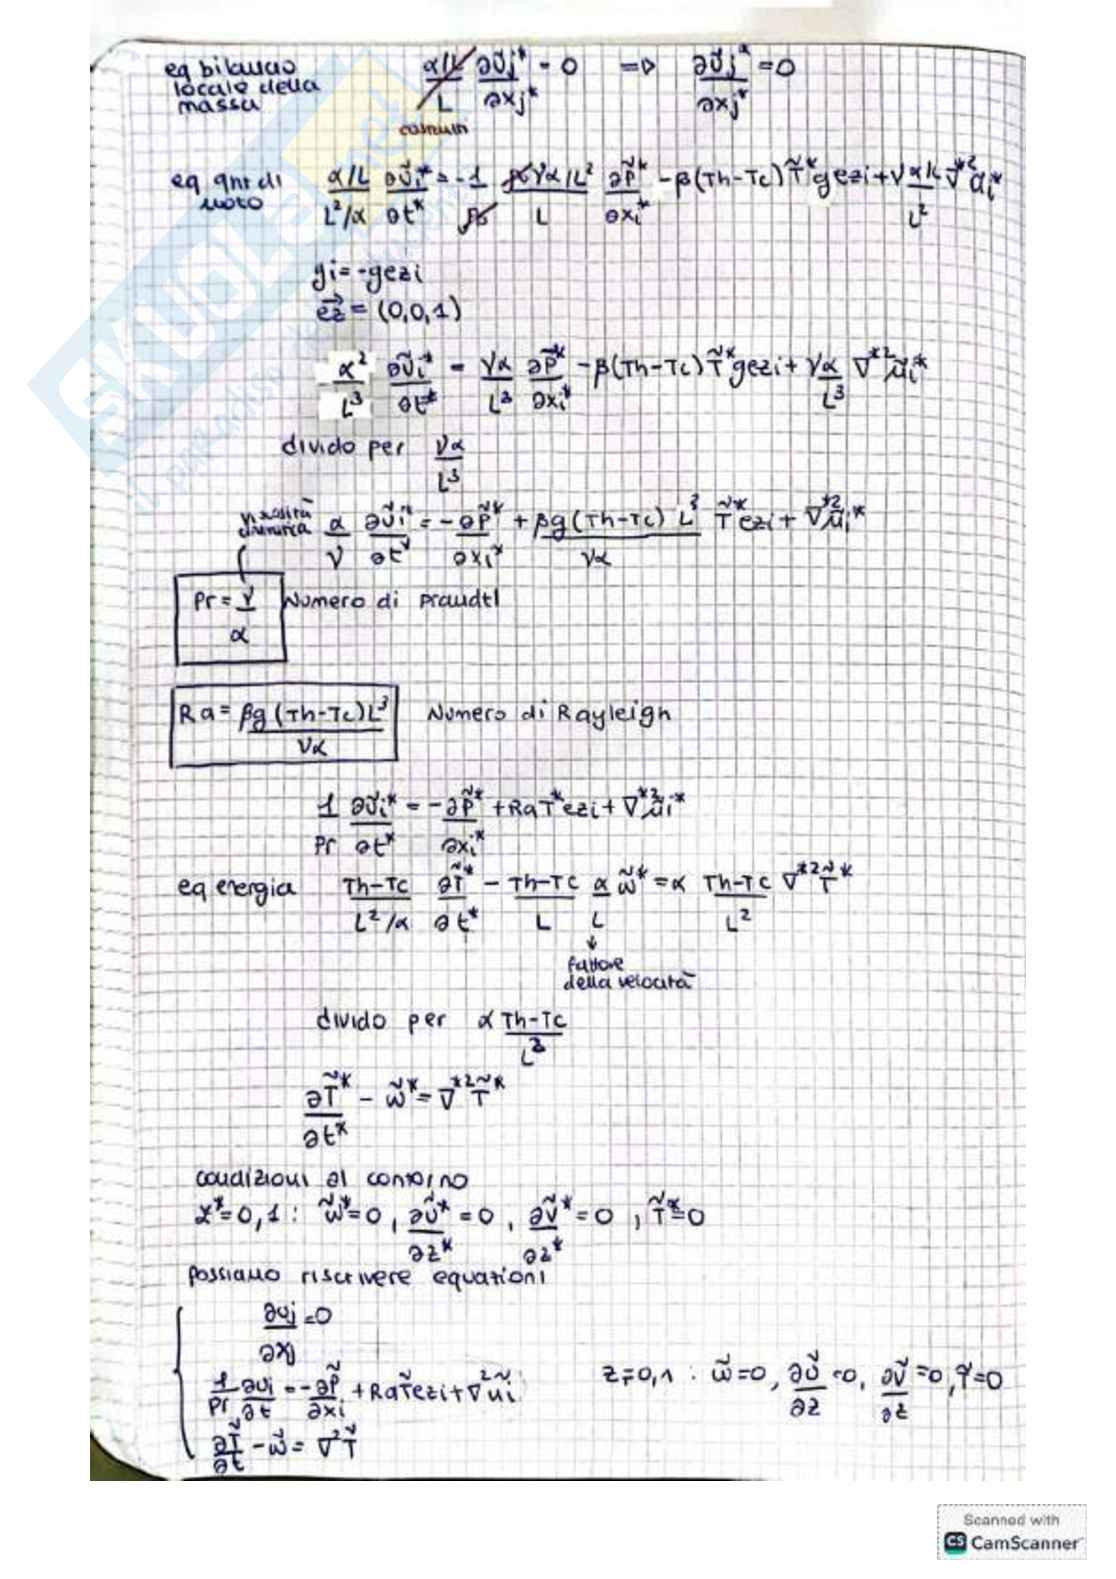 eq bilancio locale della massa α/L/L ∂Ũj*/∂xj* = 0 ⇒ ∂Ũj*/∂xj* = 0
costruin
eq qnt di moto α/L / L²/α ∂Ũi*/∂t* = -1/ρ₀ ρ₀να/L² / L ∂P̃*/∂xi* - β(Th-Tc)T̃*gezi + ν α/L / L² ∇*²ũi*
gi = -gezi
ez = (0,0,1)
α²/L³ ∂Ũi*/∂t* = να/L³ ∂P̃*/∂xi* - β(Th-Tc)T̃*gezi + να/L³ ∇*²ũi*
divido per να/L³
α/ν ∂Ũi*/∂t* = -∂P̃*/∂xi* + βg(Th-Tc)L³/να T̃*ezi + ∇*²ũi*
Pr = ν/α Numero di Prandtl
Ra = βg(Th-Tc)L³/να Numero di Rayleigh
1/Pr ∂Ũi*/∂t* = -∂P̃*/∂xi* + RaT*ezi + ∇*²ũi*
eq energia Th-Tc/L²/α ∂T̃*/∂t* - Th-Tc/L α/L w̃* = α Th-Tc/L² ∇*²T̃*
↓
fattore
della velocità
divido per α Th-Tc/L²
∂T̃*/∂t* - w̃* = ∇*²T̃*
condizioni al contorno
z* = 0,1 : w̃* = 0, ∂Ũ*/∂z* = 0, ∂Ṽ*/∂z* = 0, T̃* = 0
possiamo riscrivere equazioni
∂uj/∂xj = 0
1/Pr ∂ui/∂t = -∂P̃/∂xi + RaT̃ezi + ∇²ũi z = 0,1 : w̃ = 0, ∂Ũ/∂z = 0, ∂Ṽ/∂z = 0, T̃ = 0
∂T̃/∂t - w̃ = ∇²T̃
Scanned with
CS CamScanner